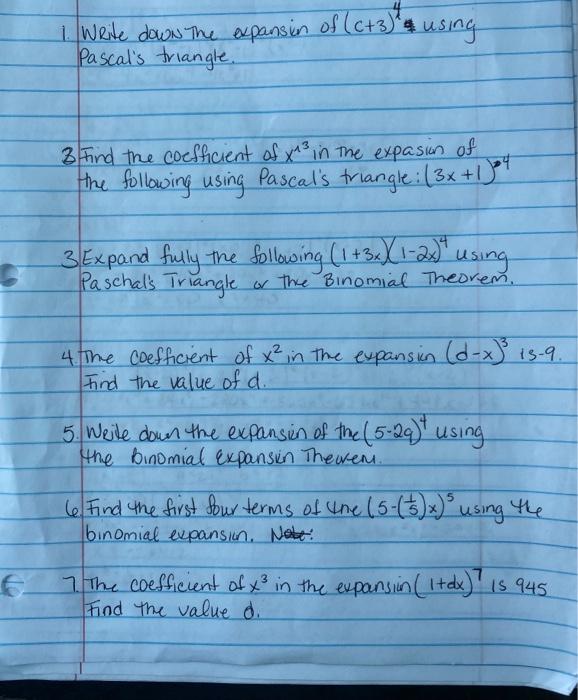 1. Write down the expansin of (c+3)^4 using
Pascal's triangle.
3 Find the coefficient of x^3 in the expasion of
the following using Pascal's triangle: (3x+1)^4
3 Expand fully the following (1+3x)(1-2x)^4 using
Paschal's Triangle or the Binomial Theorem.
4. The coefficient of x^2 in the expansion (d-x)^3 is -9.
Find the value of d.
5. Write down the expansion of the (5-2q)^4 using
the binomial expansion Theorem.
6. Find the first four terms of the (5-(1/5)x)^5 using the
binomial expansion. Note:
7. The coefficient of x^3 in the expansion (1+dx)^7 is 945
Find the value d.